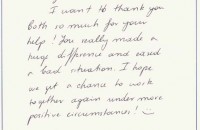 I want to thank you
both so much for your
help! You really made a
huge difference and eased
a bad situation. I hope
we get a chance to work
together again under more
positive circumstances!